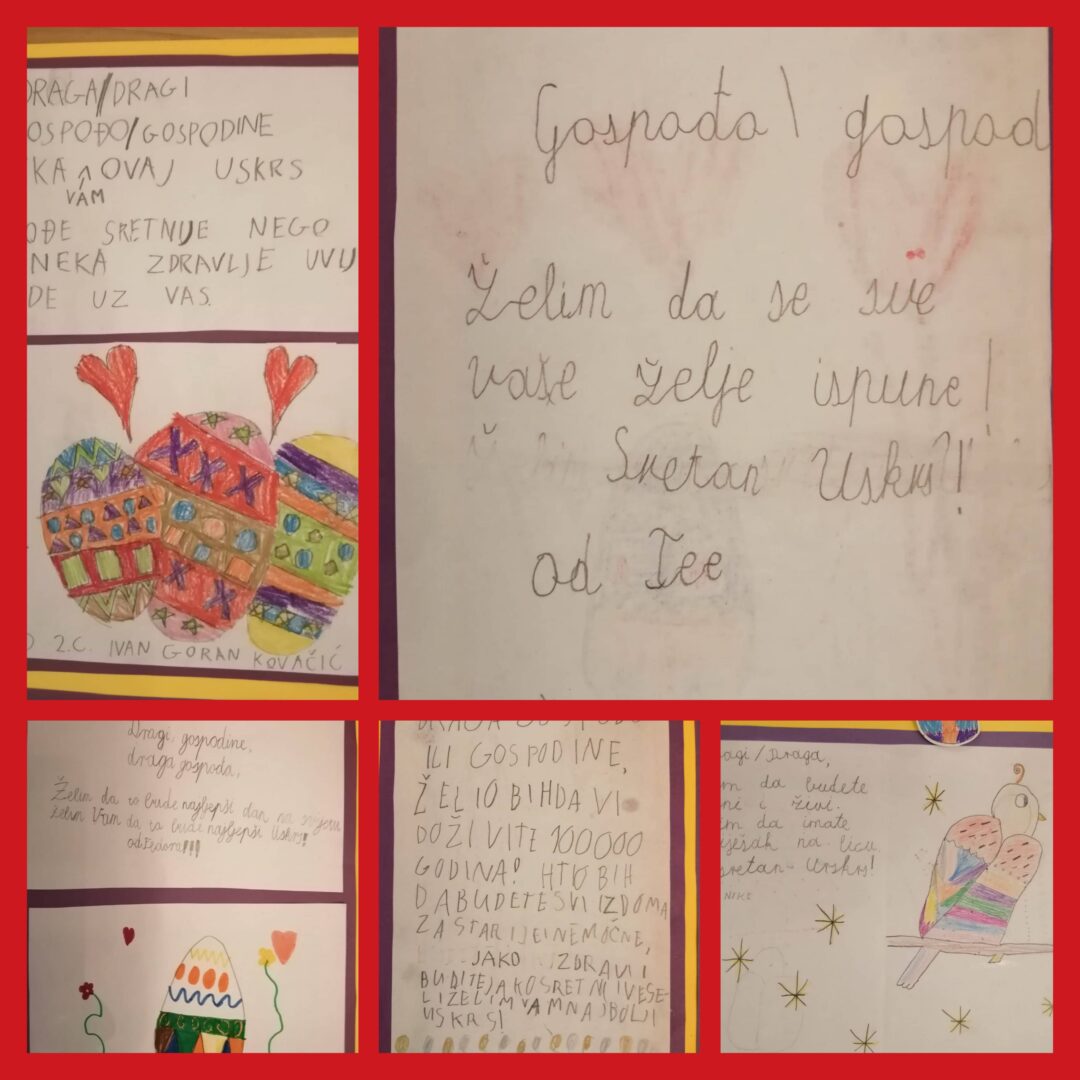 DRAGA/DRAGI
OSPOĐO/GOSPODINE
KA OVAJ USKRS
VAM
OĐE SRETNIJE NEGO
NEKA ZDRAVLJE UVIJ
DE UZ VAS.
2.C. IVAN GORAN KOVAČIĆ
Gospođo \ gospod
Želim da se sve
vaše želje ispune!
Sretan Uskrs!!
od Tee
Dragi, gospodine,
draga gospođa,
Želim da to bude najljepši dan na svijetu
želim Vam da to bude najljepši Uskrs!!
od Fedora!!!
ILI GOSPODINE,
ŽELIO BIH DA VI
DOŽIVITE 100000
GODINA! HTIO BIH
DA BUDETE SVI IZ DOMA
ZA STARIJE I NEMOĆNE,
JAKO ZDRAVI
BUDITE JAKO SRETNI I VESE-
LI ŽELIM VAM NAJBOLJI
USKRS!
agi/Draga,
m da budete
ni i živi.
im da imate
iješak na licu.
sretan Uskrs!
NIKE